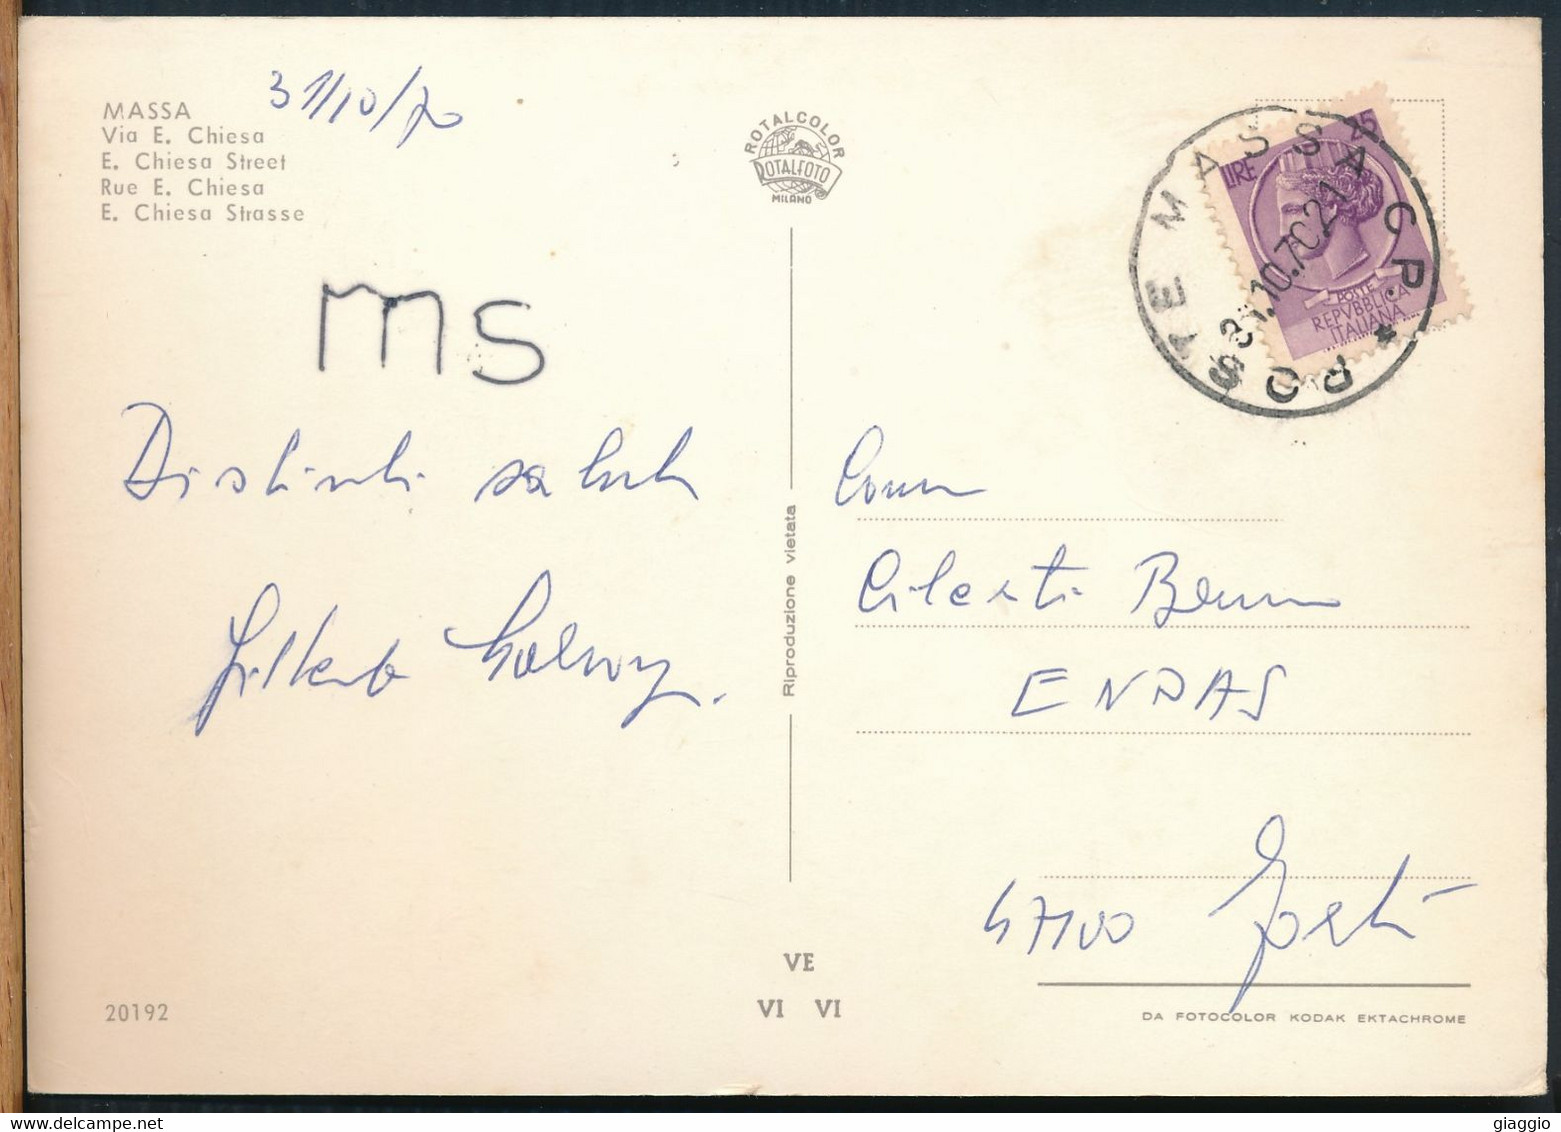 MASSA
Via E. Chiesa
E. Chiesa Street
Rue E. Chiesa
E. Chiesa Strasse
31/10/70
ROTALCOLOR
ROTALFOTO
MILANO
LIRE 25
POSTE
REPVBBLICA
ITALIANA
POSTE MASSA C.P. *
31.10.70.21
ms
Distinti saluti
Gilberto
Riproduzione vietata
Comm
Celesti Bruno
ENDAS
47100 Forlì
20192
VE
VI VI
DA FOTOCOLOR KODAK EKTACHROME
giaggio